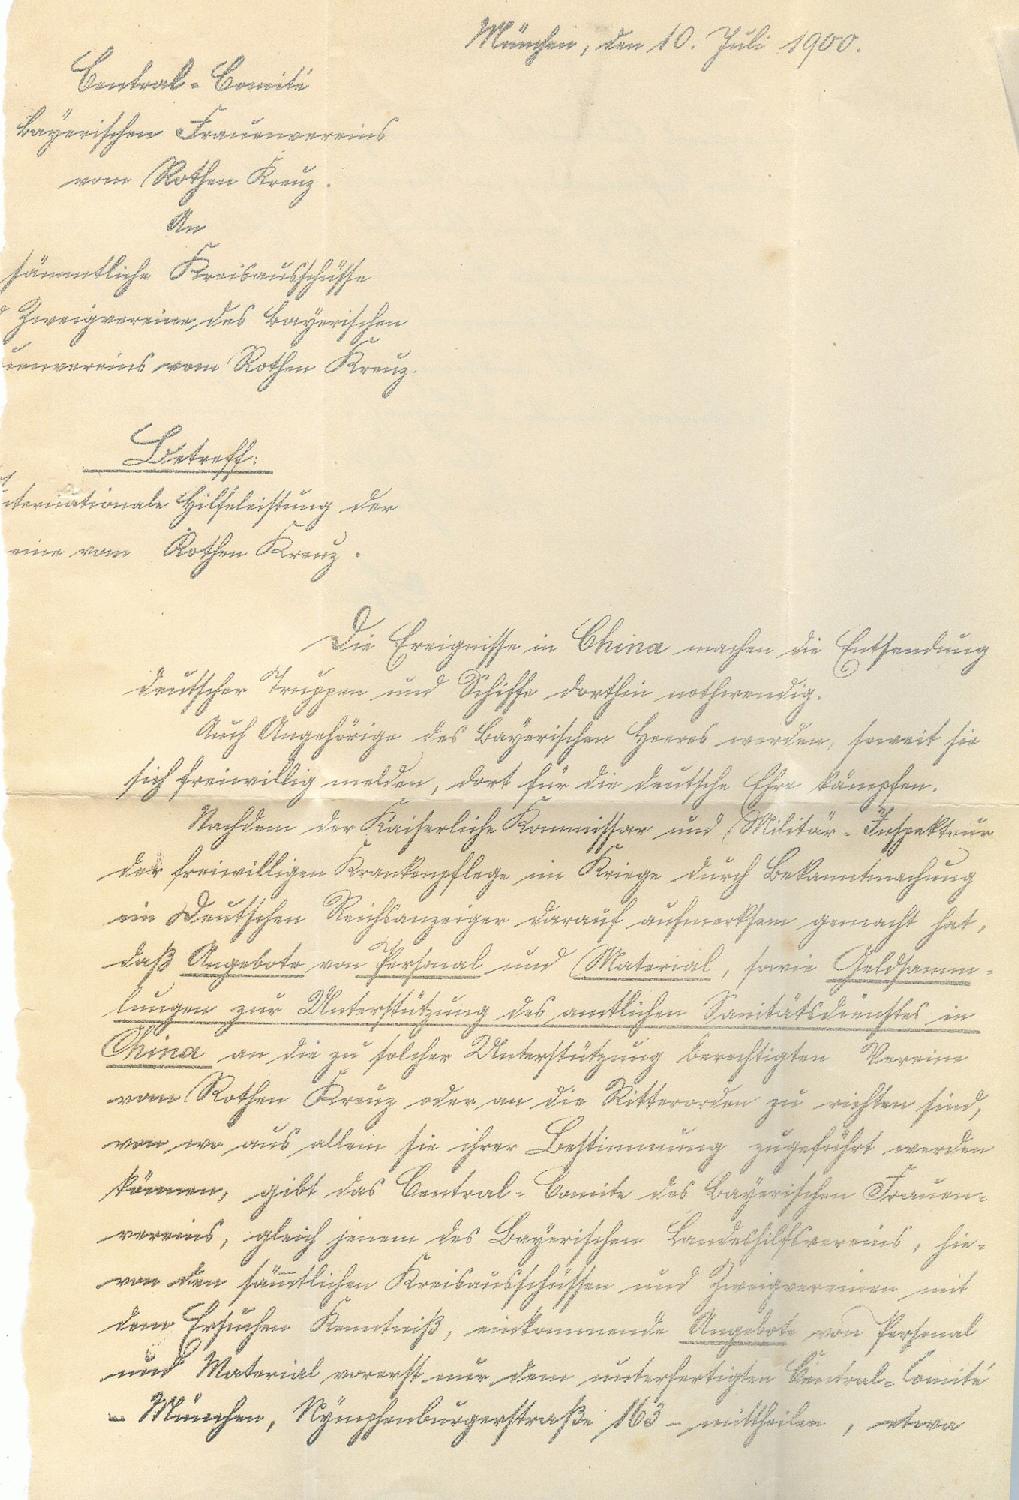 München, den 10. Juli 1900.
Central-Comité
Bayerischen Frauenvereins
vom Rothen Kreuz.
An
sämmtliche Kreisausschüsse
Zweigvereine des Bayerischen
uenvereins vom Rothen Kreuz.
Betreff:
nternationale Hilfeleistung der
eine vom Rothen Kreuz.
Die Ereignisse in China machen die Entsendung
deutscher Truppen und Schiffe dorthin nothwendig.
Auch Angehörige des Bayerischen Heeres werden, soweit sie
sich freiwillig melden, dort für die deutsche Ehre kämpfen.
Nachdem der Kaiserliche Kommissar und Militär-Inspekteur
der freiwilligen Krankenpflege im Kriege durch Bekanntmachung
im Deutschen Reichsanzeiger darauf aufmerksam gemacht hat,
daß Angebote von Personal und Material, sowie Geldsamm-
lungen zur Unterstützung des amtlichen Sanitätsdienstes in
China an die zu solcher Unterstützung berechtigten Vereine
vom Rothen Kreuz oder an die Ritterorden zu richten sind,
von wo aus allein sie ihrer Bestimmung zugeführt werden
können, gibt das Central-Comite des Bayerischen Frauen-
vereins, gleich jenem des Bayerischen Landeshilfsvereins, hie-
von den sämmtlichen Kreisausschüssen und Zweigvereinen mit
dem Ersuchen Kenntniß, einkommende Angebote von Personal
und Material vorerst nur dem unterfertigten Central-Comité
– München, Nymphenburgerstraße 163 – mittheilen, etwa